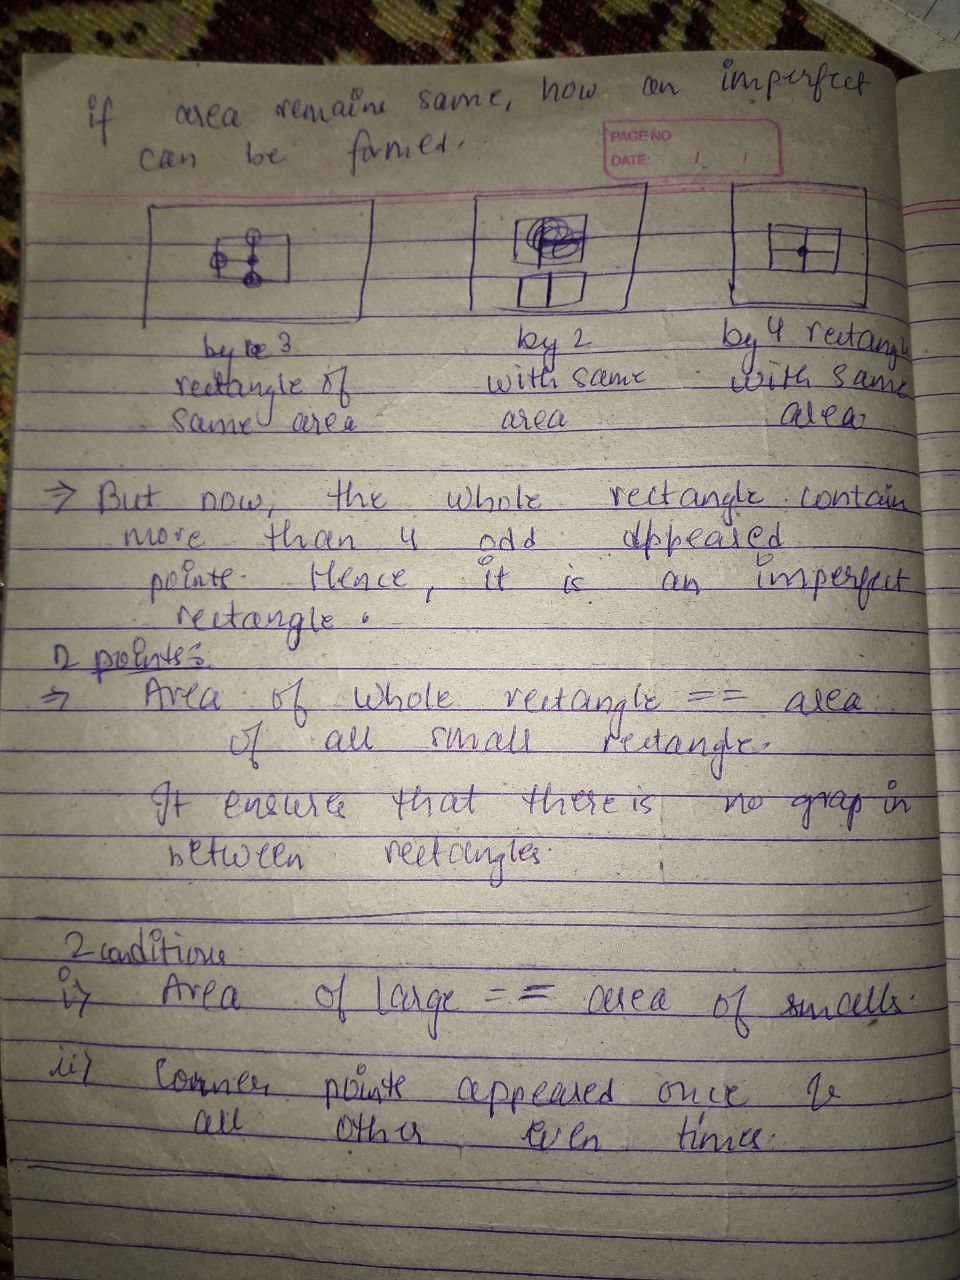 if area remains same, how an imperfect
can be formed.
PAGE NO
DATE: / /
by 3
rectangle of
same area
by 2
with same
area
by 4 rectangle
with same
area
⇒ But now, the whole rectangle contain
more than 4 odd appeared
points. Hence, it is an imperfect
rectangle.
2 points:
⇒ Area of whole rectangle == area
of all small rectangle.
It ensures that there is no grap in
between rectangles.
2 conditions
i) Area of large == area of smalls.
ii) Corner points appeared once &
all other even times.